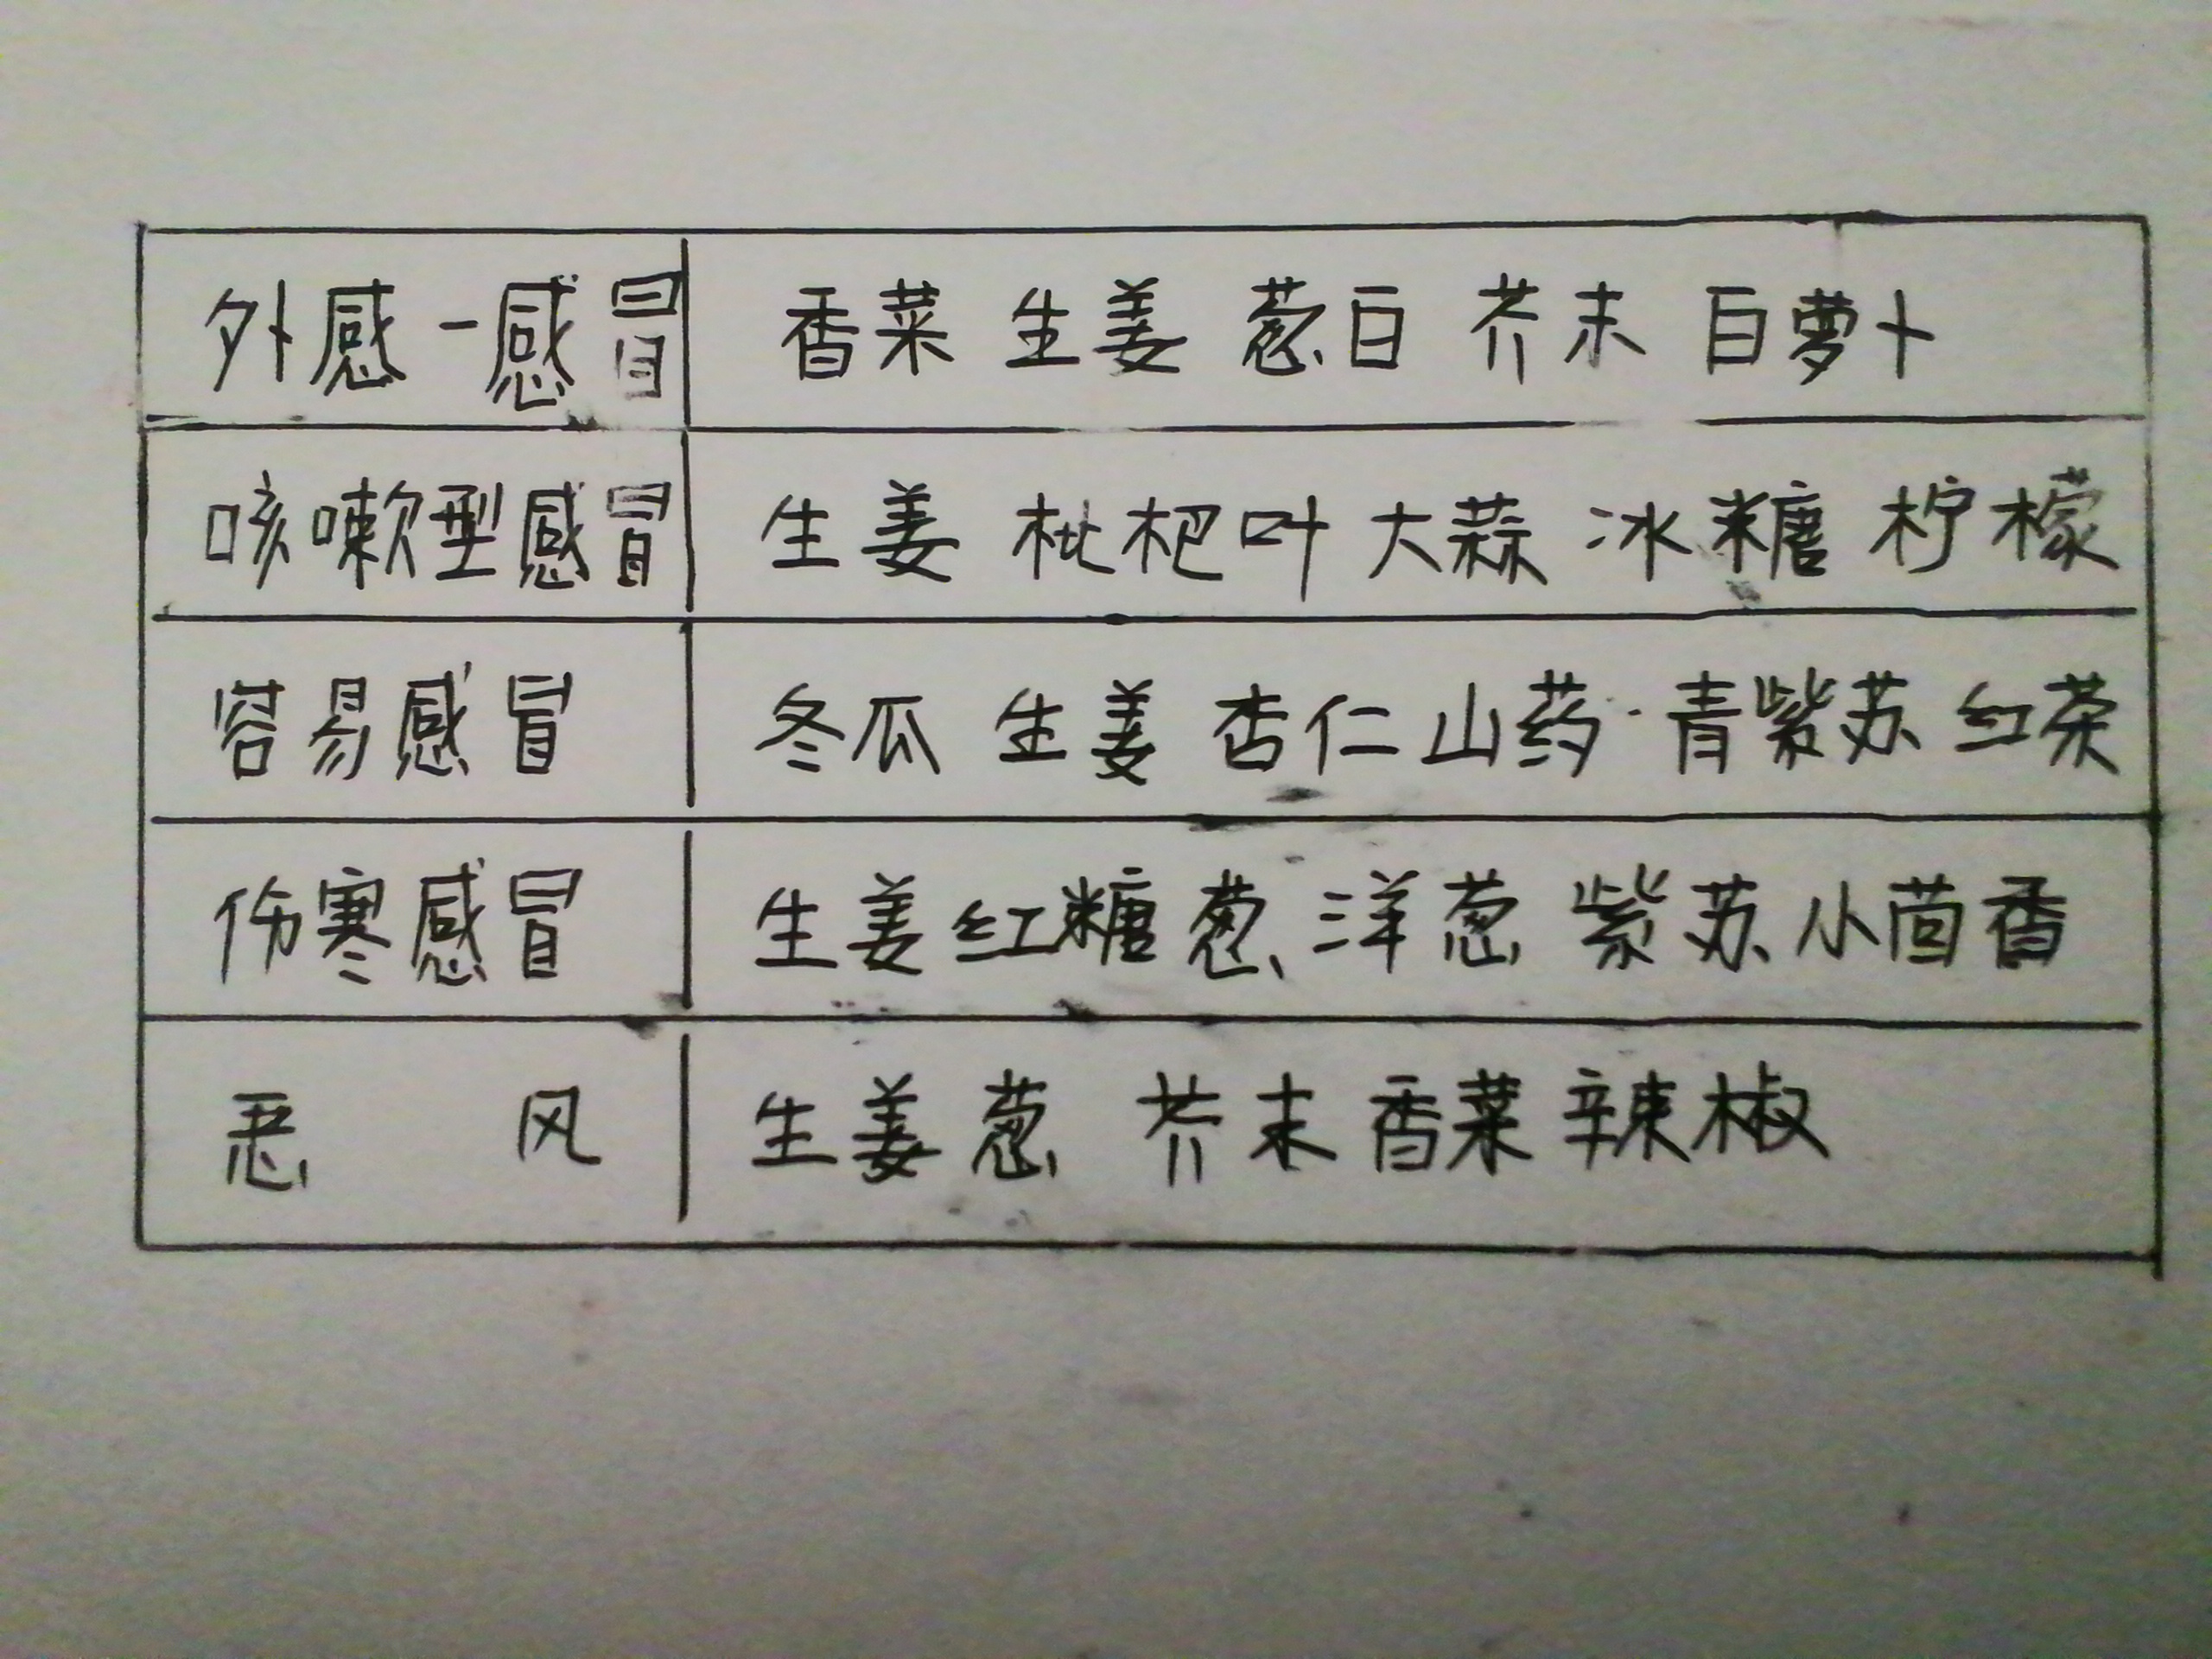 外感-感冒 香菜 生姜 葱白 芥末 白萝卜
咳嗽型感冒 生姜 枇杷叶 大蒜 冰糖 柠檬
容易感冒 冬瓜 生姜 杏仁 山药·青紫苏 红茶
伤寒感冒 生姜 红糖 葱、洋葱 紫苏 小茴香
恶 风 生姜 葱 芥末 香菜 辣椒